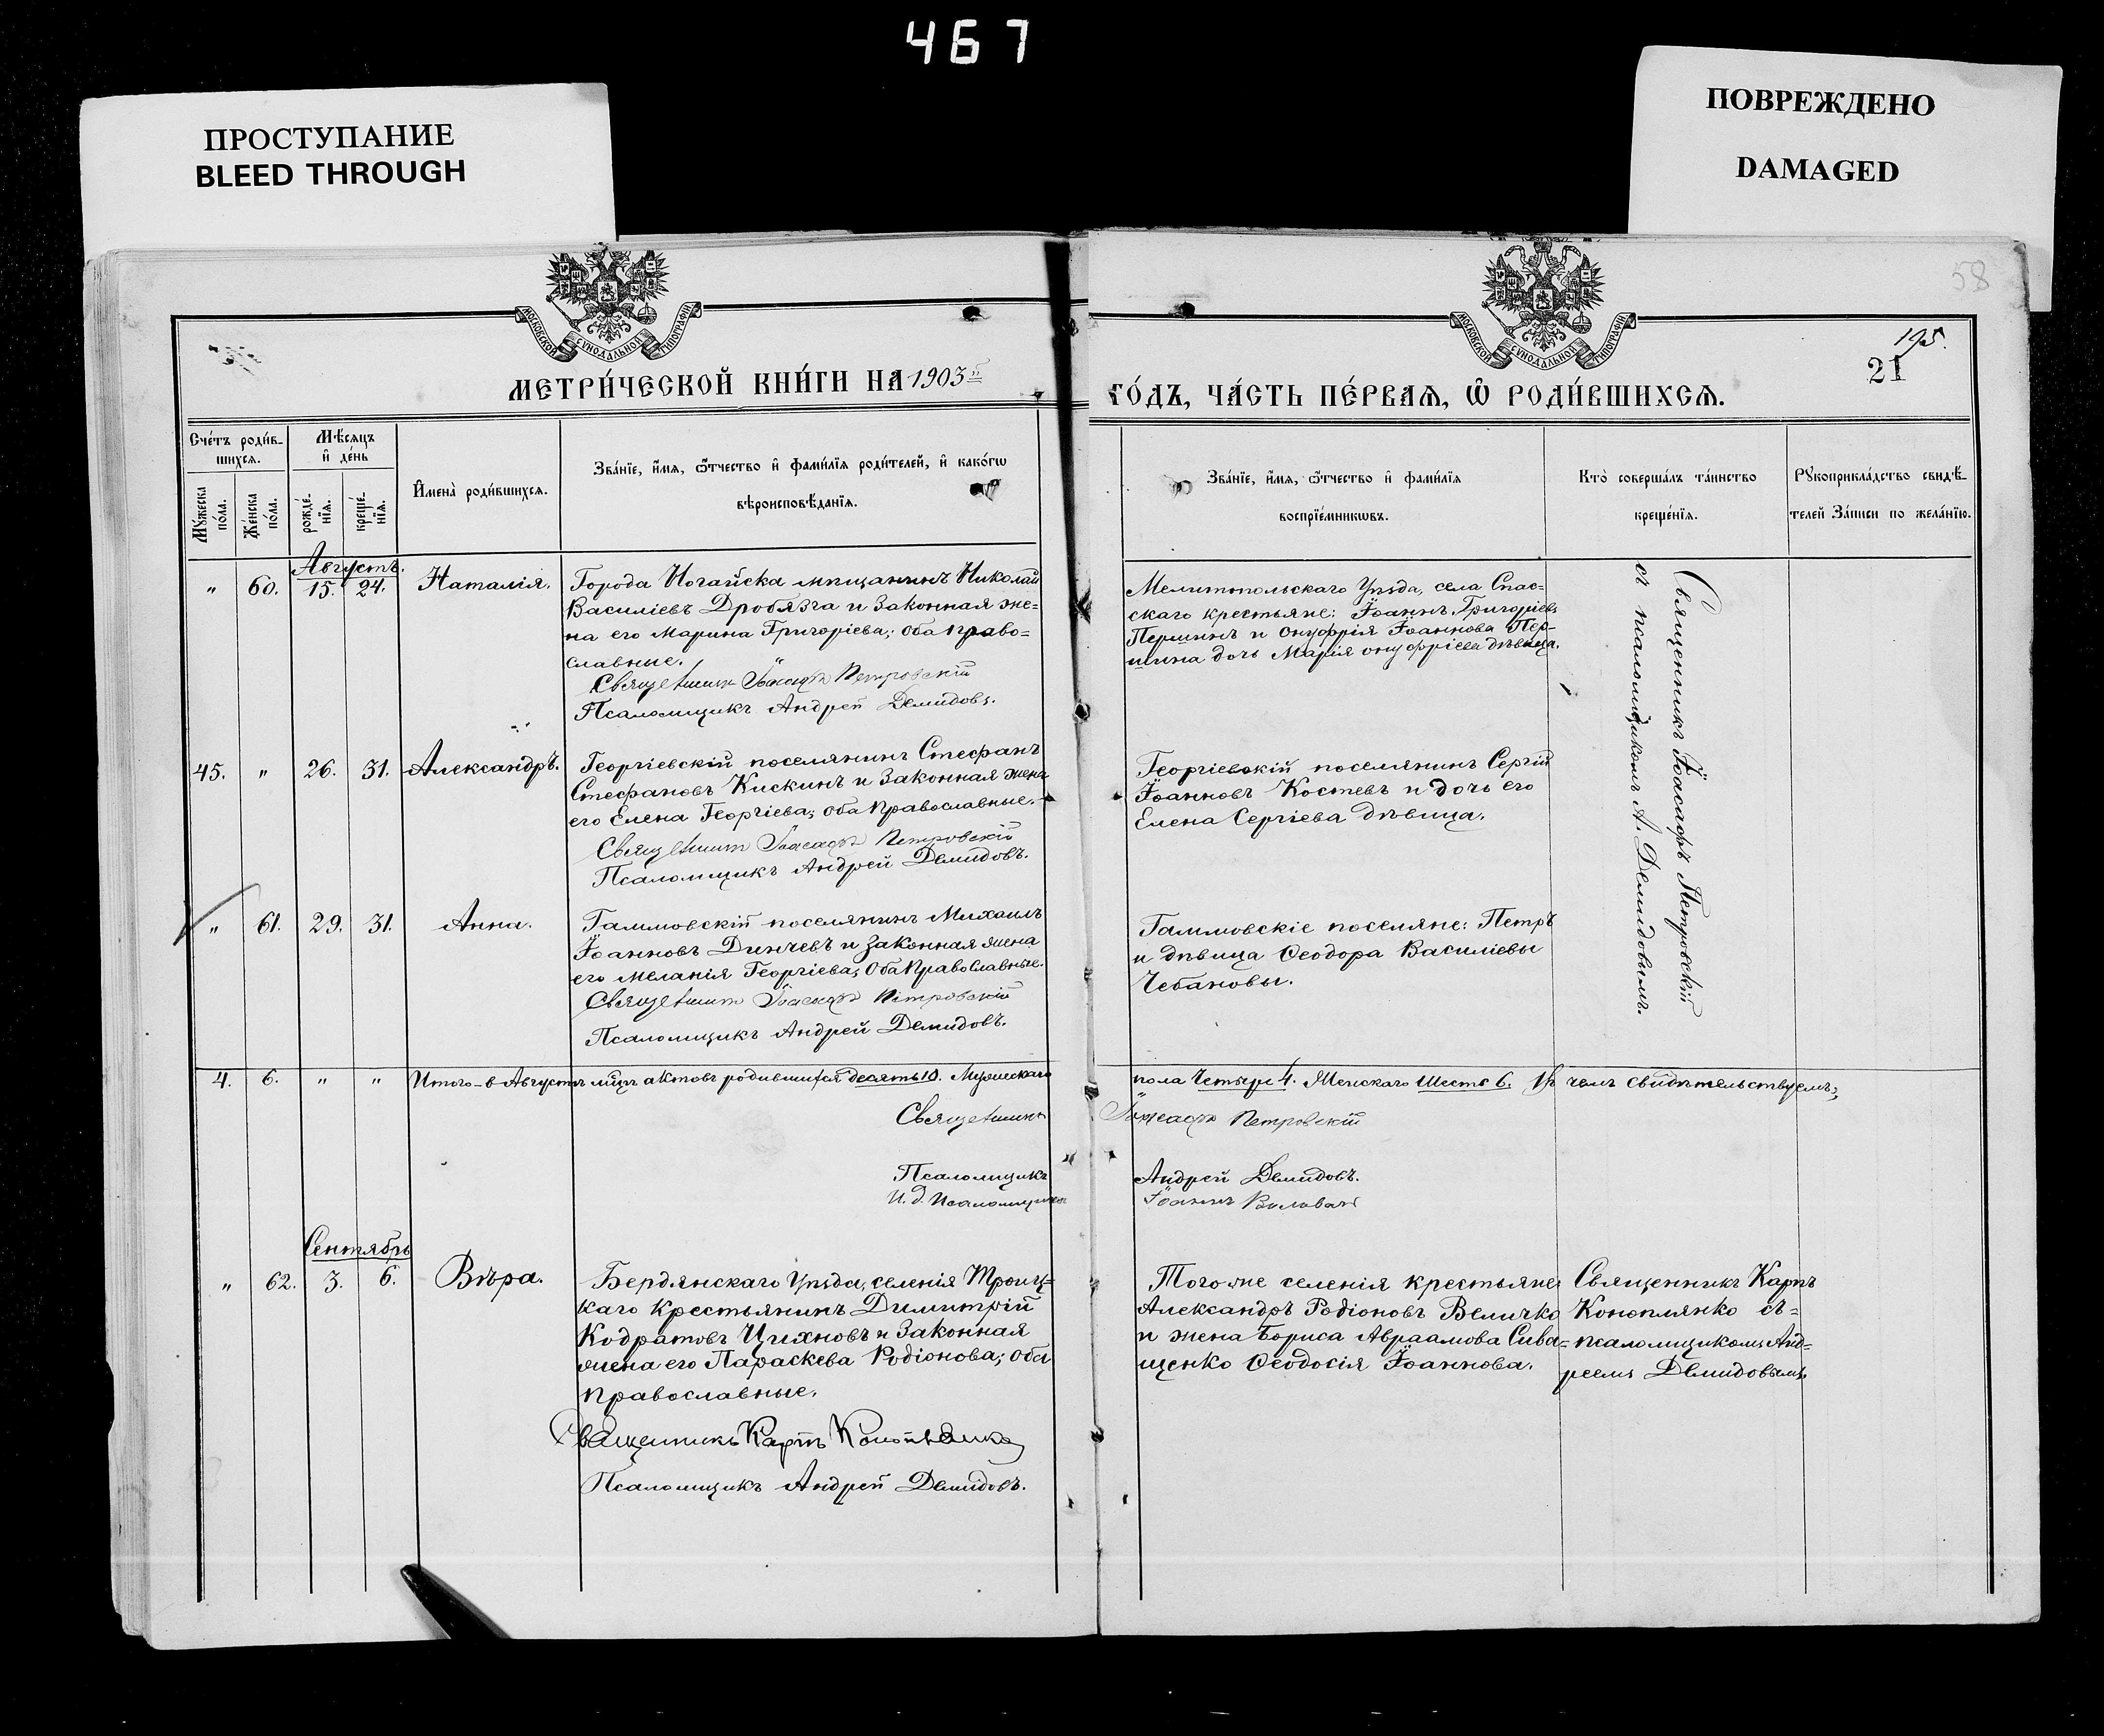 467
ПРОСТУПАНИЕ
BLEED THROUGH
ПОВРЕЖДЕНО
DAMAGED
58
МОСКОВСКОЙ СѴНОДАЛЬНОЙ ТИПОГРАФІИ
МОСКОВСКОЙ СѴНОДАЛЬНОЙ ТИПОГРАФІИ
195.
21
МЕТРИ́ЧЕСКОЙ КНИ́ГИ НА 1903й
ГО́ДЪ, ЧА́СТЬ ПЕ́РВАѦ, Ѡ҆ РОДИ́ВШИХСѦ.
Сче́тъ роди́в-
шихсѧ.
Мѣ́сѧцъ
и҆ де́нь
Мꙋ́жеска по́ла.
Же́нска по́ла.
рожде́-
нїѧ.
креще́-
нїѧ.
И҆мена̀ роди́вшихсѧ.
Зва́нїе, и҆́мѧ, ѻ҆́тчество и҆ фами́лїѧ роди́телей, и҆ како́гѡ
вѣроисповѣ́данїѧ.
Зва́нїе, и҆́мѧ, ѻ҆́тчество и҆ фами́лїѧ
воспрїе́мникѡвъ.
Кто̀ соверша́лъ та́инство
креще́нїѧ.
Рꙋкоприкла́дство свидѣ́-
телей за́писи по жела́нїю.
Августъ.
" 60. 15. 24. Наталія.
Города Ногайска мѣщанинъ Николай
Василіевъ Дробязга и законная же-
на его Марина Григоріева; оба право-
славные.
Священникъ Іоасафъ Петровскій
Псаломщикъ Андрей Демидовъ.
Мелитопольскаго уѣзда, села Спас-
скаго крестьяне: Іоаннъ Григоріевъ
Першинъ и Онуфрія Іоаннова Пер-
шина дочь Марія Онуфріева дѣвица.
Священникъ Іоасафъ Петровскій
съ псаломщикомъ А. Демидовымъ.
45. " 26. 31. Александръ.
Георгіевскій поселянинъ Стефанъ
Стефановъ Кискинъ и законная жена
его Елена Георгіева; оба православные.
Священникъ Іоасафъ Петровскій
Псаломщикъ Андрей Демидовъ.
Георгіевскій поселянинъ Сергій
Іоанновъ Костевъ и дочь его
Елена Сергіева дѣвица.
" 61. 29. 31. Анна.
Гаммовскій поселянинъ Михаилъ
Іоанновъ Динчевъ и законная жена
его Меланія Георгіева; оба православные.
Священникъ Іоасафъ Петровскій
Псаломщикъ Андрей Демидовъ.
Гаммовскіе поселяне: Петръ
и дѣвица Ѳеодора Василіевы
Чебановы.
4. 6. " " Итого въ Августѣ мцѣ актовъ родившихся десять 10. Мужескаго
пола четыре 4. Женскаго шесть 6. Въ чемъ свидѣтельствуемъ;
Священникъ Іоасафъ Петровскій
Псаломщикъ Андрей Демидовъ.
И. д. псаломщика Іоаннъ
Сентябрь
" 62. 3. 6. Вѣра.
Бердянскаго уѣзда, селенія Троиц-
каго крестьянинъ Димитрій
Кодратовъ Цихновъ и законная
жена его Параскева Родіонова; оба
православные.
Священникъ Карпъ Коноплянко
Псаломщикъ Андрей Демидовъ.
Того же селенія крестьяне
Александръ Родіоновъ Величко
и жена Бориса Авраамова Сива-
щенко Ѳеодосія Іоаннова.
Священникъ Карпъ
Коноплянко съ
псаломщикомъ Анд-
реемъ Демидовымъ.